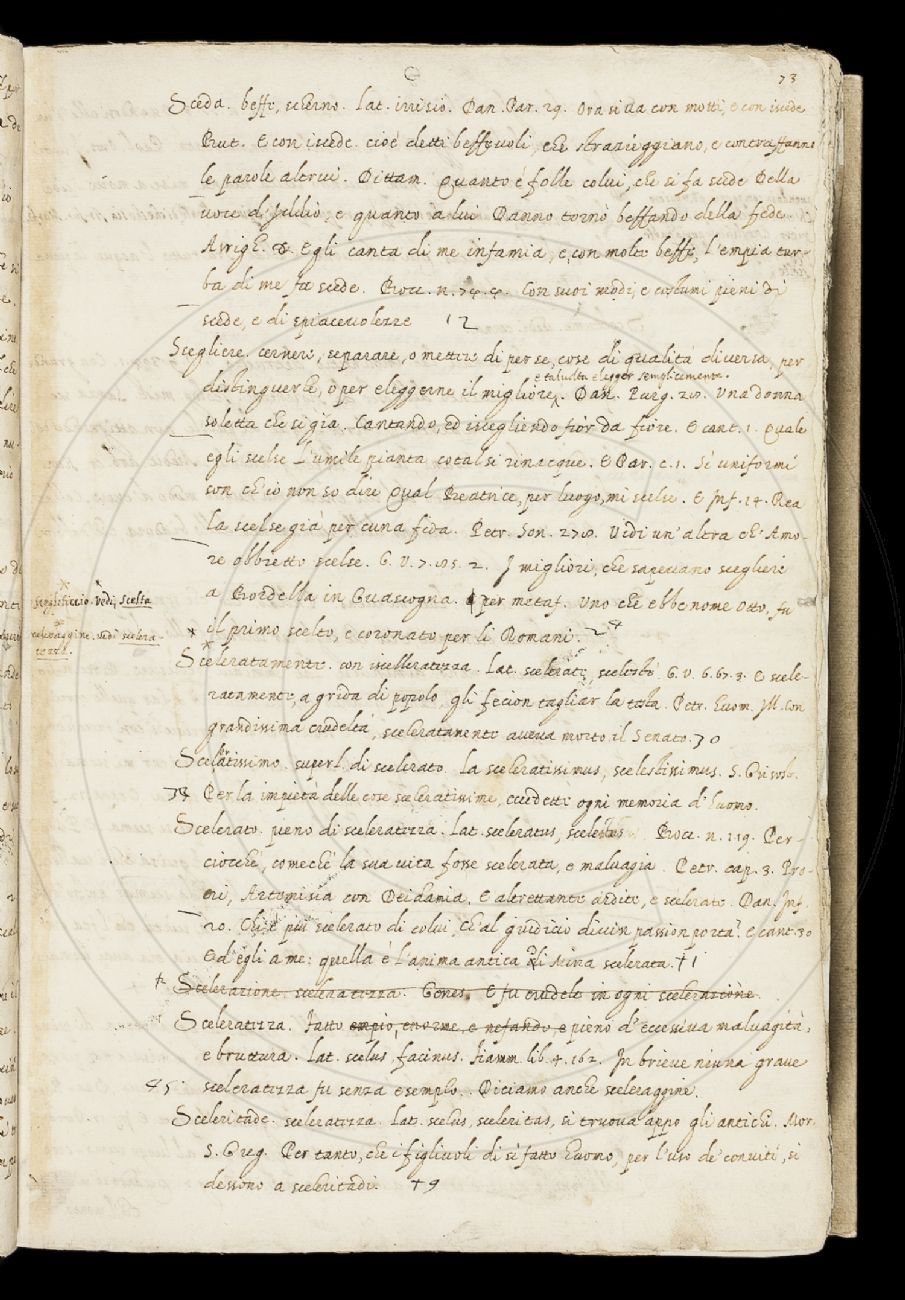 73
Sceda. beffe, scherno. Lat. irrisio. Dan. Par. 29. Ora si va con motti, e con iscede
But. E con iscede. cioè detti beffevoli, che strazieggiano, e contraffanno
le parole altrui. Dittam. Quanto è folle colui, che si fa scede Della
voce d'Iddio, e quanto a lui Danno tornò beffando della fede
Arrigh. Egli canta di me infamia, e con molte beffe, l'empia tur-
ba di me fa scede. Bocc. n. Con suoi modi, e costumi pieni di
scede, e di spiacevolezze 12
Scegliere. cernere, separare, o mettere di per se, cose di qualità diversa, per
e talvolta elegger semplicemente.
distinguerle, o per eleggerne il migliore. Dan. Purg. 28. Una donna
soletta che si gia. Cantando, ed iscegliendo fior da fiore. E cant. 1. Quale
egli scelse L'umile pianta cotal si rinacque. E Par. c. 1. Sì uniformi
son ch'io non so dire Qual Beatrice, per luogo, mi scelse. E Inf. 14. Rea
la scelse già per cuna fida. Petr. Son. Vidi un'altra ch'Amo-
re obbietto scelse. G. V. 7. 105. 2. I migliori, che sapevano scegliere
a Bordella in Guascogna. per metaf. Uno che ebbe nome Otto, fu
il primo scelto, e coronato per li Romani. 24
Sceglieticcio. Vedi, Scelta
Scelleraggine. vedi scelera-
tezza.
Sceleratamente. con iscelleratezza. Lat. G. V. 6. 67. 3. E scele-
ratamente, a grida di popolo, gli fecion tagliar la testa. Petr. Huom. Ill. Con
grandissima crudeltà, sceleratamente aveva morto il Senato. 30
Sceleratissimo. superl. di scelerato. La sceleratissimus, scelestissimus. S. Grisost.
38 Per la impietà delle cose sceleratissime, excedetti ogni memoria d'huomo.
Scelerato. pieno di sceleratezza. Lat. sceleratus, scelestus. Bocc. n. 119. Per-
ciocchè, comechè la sua vita fosse scelerata, e malvagia. Petr. cap. 3. Pro-
cri, Artemisia con Deidamia. E altrettante ardite, e scelerate. Dan. Inf.
20. Chi è più scelerato di colui, Ch'al giudicio divin passion porta? E cant. 30
Ed egli a me: quella è l'anima antica Di Mirra scelerata. +1
Scelerazione. sceleratezza. Genes. E fu crudele in ogni scelerazione.
Sceleratezza. Fatto empio, enorme, e nefando, e pieno d'eccessiva malvagità,
e bruttura. Lat. scelus, facinus. Fiamm. lib. 4. 162. In brieve niuna grave
45. sceleratezza fu senza esemplo. Diciamo anche sceleraggine.
Sceleritade. sceleratezza. Lat. scelus, sceleritas, si truova appo gli antichi. Mor.
S. Greg. Per tanto, che i figliuoli di sì fatto huomo, per l'uso de' conviti, si
dessono a sceleritadi. +9